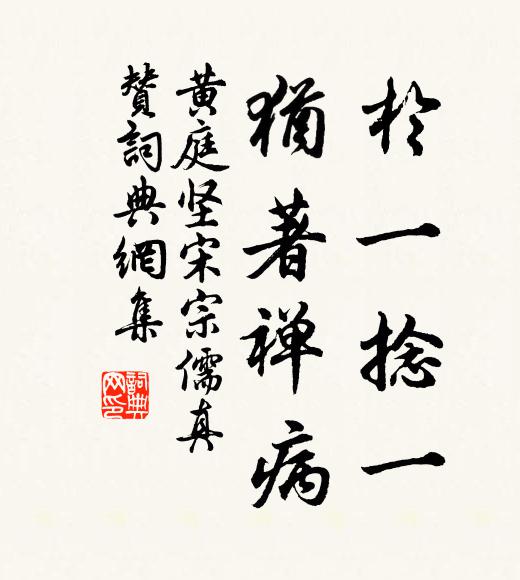 於一捻一
猶著禅病
黄庭坚宋宗儒真
赞詞典網集
詞典网印